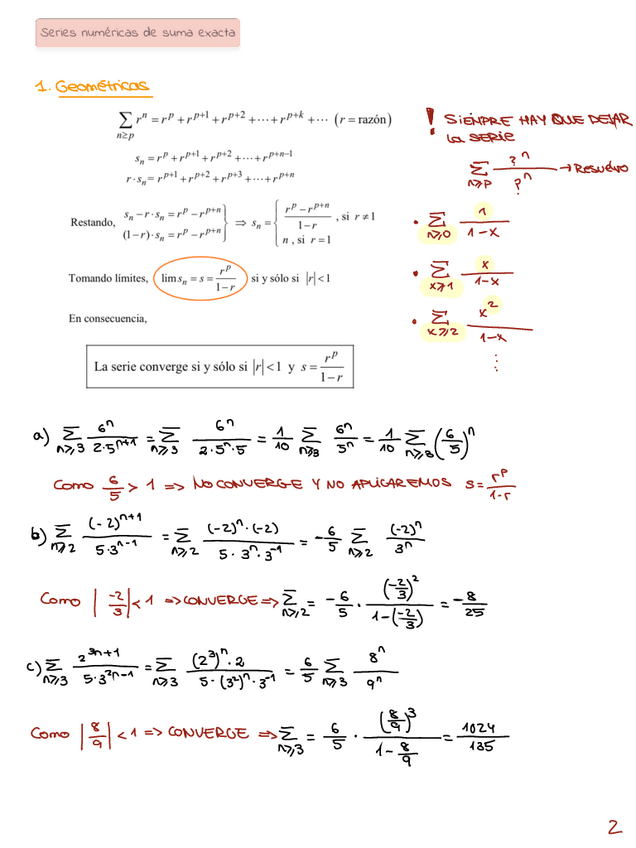 Series numéricas de suma exacta
1. Geométricas
∑_{n≥p} r^n = r^p + r^{p+1} + r^{p+2} + ⋯ + r^{p+k} + ⋯ (r = razón)
s_n = r^p + r^{p+1} + r^{p+2} + ⋯ + r^{p+n-1}
r · s_n = r^{p+1} + r^{p+2} + r^{p+3} + ⋯ + r^{p+n}
Restando, s_n - r · s_n = r^p - r^{p+n} } ⇒ s_n = { (r^p - r^{p+n})/(1-r), si r ≠ 1
(1-r) · s_n = r^p - r^{p+n} } n, si r = 1
Tomando límites, lim s_n = s = r^p/(1-r) si y sólo si |r| < 1
En consecuencia,
La serie converge si y sólo si |r| < 1 y s = r^p/(1-r)
! SIENPRE HAY QUE DEJAR
LA SERIE
∑_{n≥p} ?^n/?^n → RESUELVO
• ∑_{n≥0} 1/(1-x)
• ∑_{x≥1} x/(1-x)
• ∑_{x≥2} x^2/(1-x)
⋮
a) ∑_{n≥3} 6^n/(2·5^{n+1}) = ∑_{n≥3} 6^n/(2·5^n·5) = 1/10 ∑_{n≥3} 6^n/5^n = 1/10 ∑_{n≥3} (6/5)^n
COMO 6/5 > 1 => NO CONVERGE Y NO APLICAREMOS S = r^p/(1-r)
b) ∑_{n≥2} (-2)^{n+1}/(5·3^{n-1}) = ∑_{n≥2} (-2)^n·(-2)/(5·3^n·3^{-1}) = -6/5 ∑_{n≥2} (-2)^n/3^n
COMO |-2/3| < 1 => CONVERGE => ∑_{n≥2} = -6/5 · (-2/3)^2/(1-(-2/3)) = -8/25
c) ∑_{n≥3} 2^{3n+1}/(5·3^{2n-1}) = ∑_{n≥3} (2^3)^n·2/(5·(3^2)^n·3^{-1}) = 6/5 ∑_{n≥3} 8^n/9^n
COMO |8/9| < 1 => CONVERGE => ∑_{n≥3} = 6/5 · (8/9)^3/(1-8/9) = 1024/135
2